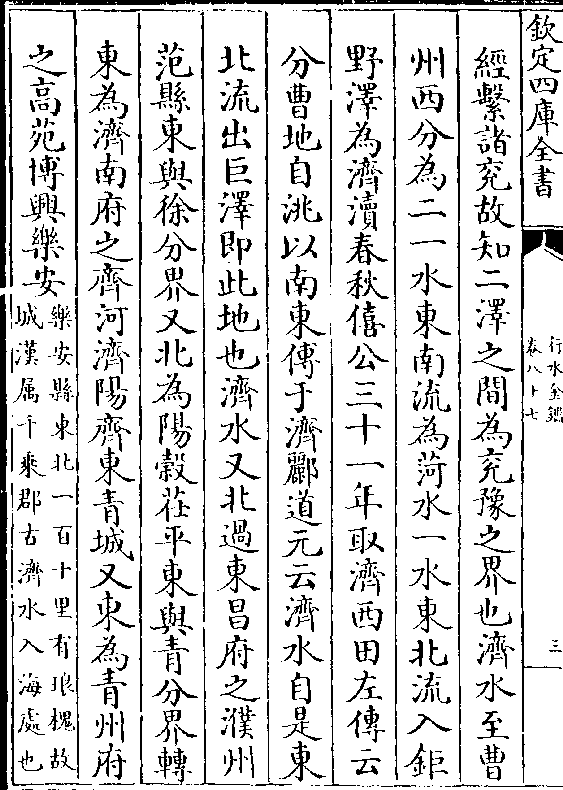 欽定四庫全書
行水金鑑
卷八十七
三
經繫諸兖故知二澤之間為兖豫之界也濟水至曹
州西分為二一水東南流為菏水一水東北流入鉅
野澤為濟瀆春秋僖公三十一年取濟西田左傳云
分曹地自洮以南東傅于濟酈道元云濟水自是東
北流出巨澤即此地也濟水又北過東昌府之濮州
范縣東與徐分界又北為陽榖茌平東與青分界轉
東為濟南府之齊河濟陽齊東青城又東為青州府
之高苑博興樂安
樂安縣東北一百十里有琅槐故
城漢属千乘郡古濟水入海處也